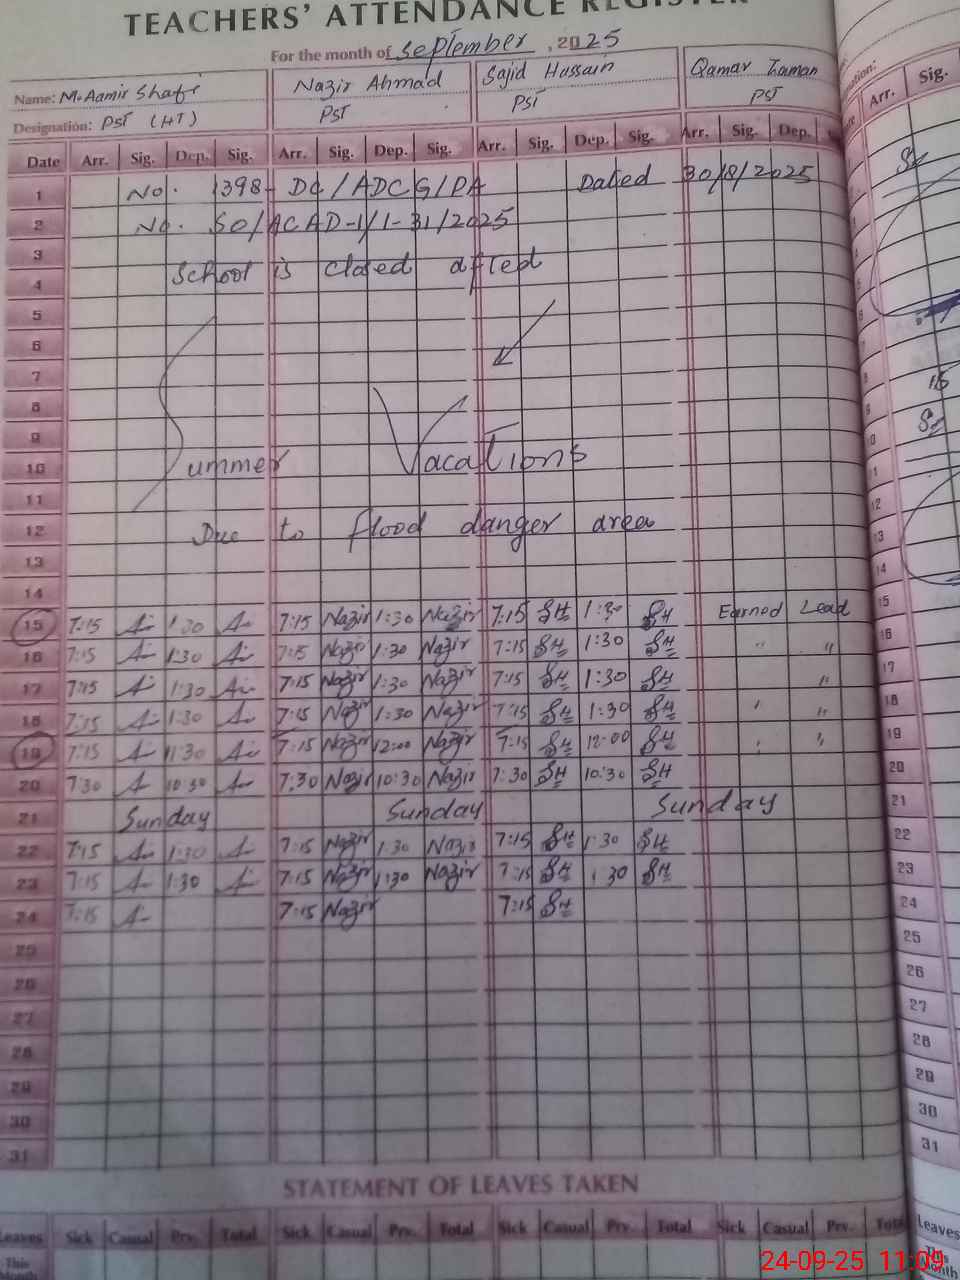 TEACHERS' ATTENDANCE REGISTER
For the month of September, 2025
Name: M. Aamir Shafi Nazir Ahmad Sajid Hussain Qamar Zaman
Designation: PST (HT) PST PST PST
Date Arr. Sig. Dep. Sig. Arr. Sig. Dep. Sig. Arr. Sig. Dep. Sig. Arr. Sig. Dep. Arr. Sig.
1 No. 1398- DC/ADCG/PA Dated 30/8/2025
2 No. SO/ACAD-1/1-31/2025
3
4 School is closed
5
6
7
8
9
10 Summer Vacations
11
12 Due to flood danger area
13
14
15 7:15 1:30 7:15 Nazir 1:30 Nazir 7:15 SH 1:30 SH Earned Lead 15
16 7:15 1:30 7:15 Nazir 1:30 Nazir 7:15 SH 1:30 SH " " 16
17 7:15 1:30 7:15 Nazir 1:30 Nazir 7:15 SH 1:30 SH " 17
18 7:15 1:30 7:15 Nazir 1:30 Nazir 7:15 SH 1:30 SH " " 18
19 7:15 11:30 7:15 Nazir 12:00 Nazir 7:15 SH 12:00 SH " " 19
20 7:30 10:30 7:30 Nazir 10:30 Nazir 7:30 SH 10:30 SH 20
21 Sunday Sunday Sunday 21
22 7:15 1:30 7:15 Nazir 1:30 Nazir 7:15 SH 1:30 SH 22
23 7:15 1:30 7:15 Nazir 1:30 Nazir 7:15 SH 1:30 SH 23
24 7:15 7:15 Nazir 7:15 SH 24
25 25
26 26
27 27
28 28
29 29
30 30
31 31
STATEMENT OF LEAVES TAKEN
Leaves Sick Casual Prv. Total Sick Casual Prv. Total Sick Casual Prv. Total Sick Casual Prv. Leaves
This Month This Month
24-09-25 11:09